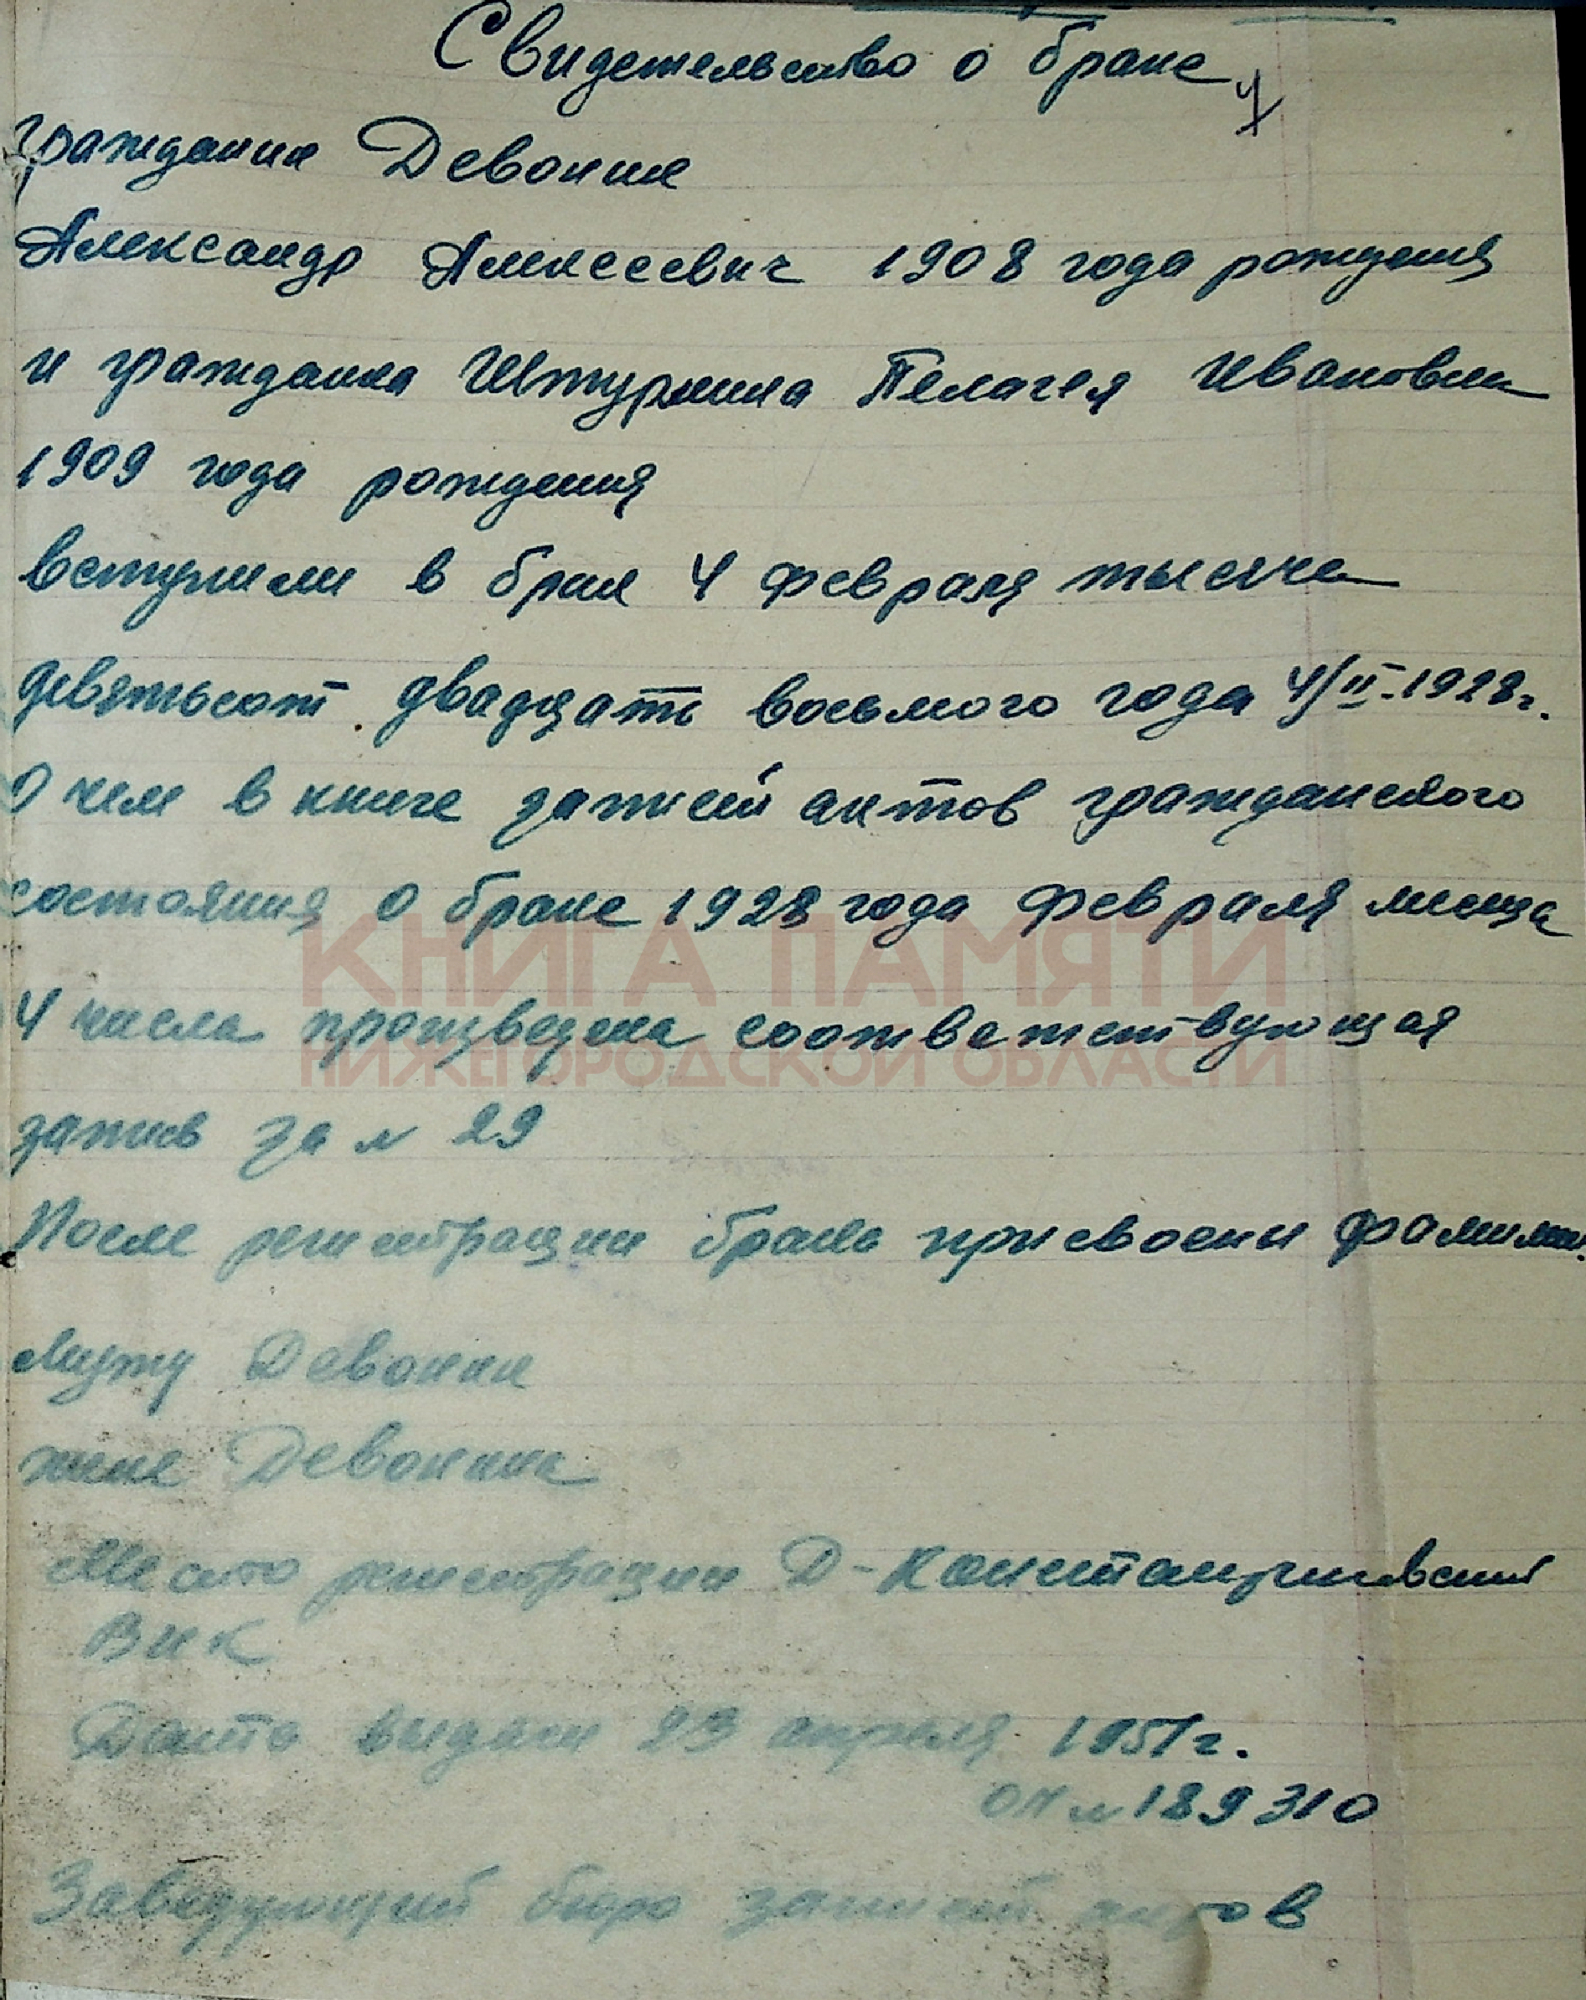 Свидетельство о браке
гражданин Девонин
Александр Алексеевич 1908 года рождения
и гражданка Штурмина Пелагея Ивановна
1909 года рождения
вступили в брак 4 февраля тысяча
девятьсот двадцать восьмого года 4/II-1928г.
О чем в книге записей актов гражданского
состояния о браке 1928 года февраля месяца
КНИГА ПАМЯТИ
4 числа произведена соответствующая
НИЖЕГОРОДСКОЙ ОБЛАСТИ
запись за № 29
После регистрации брака присвоены фамилии:
Мужу Девонин
жене Девонина
Место регистрации Д-Константиновский
ВИК
Дата выдачи 23 апреля 1951г.
№ 189310
Заведующий бюро записей актов